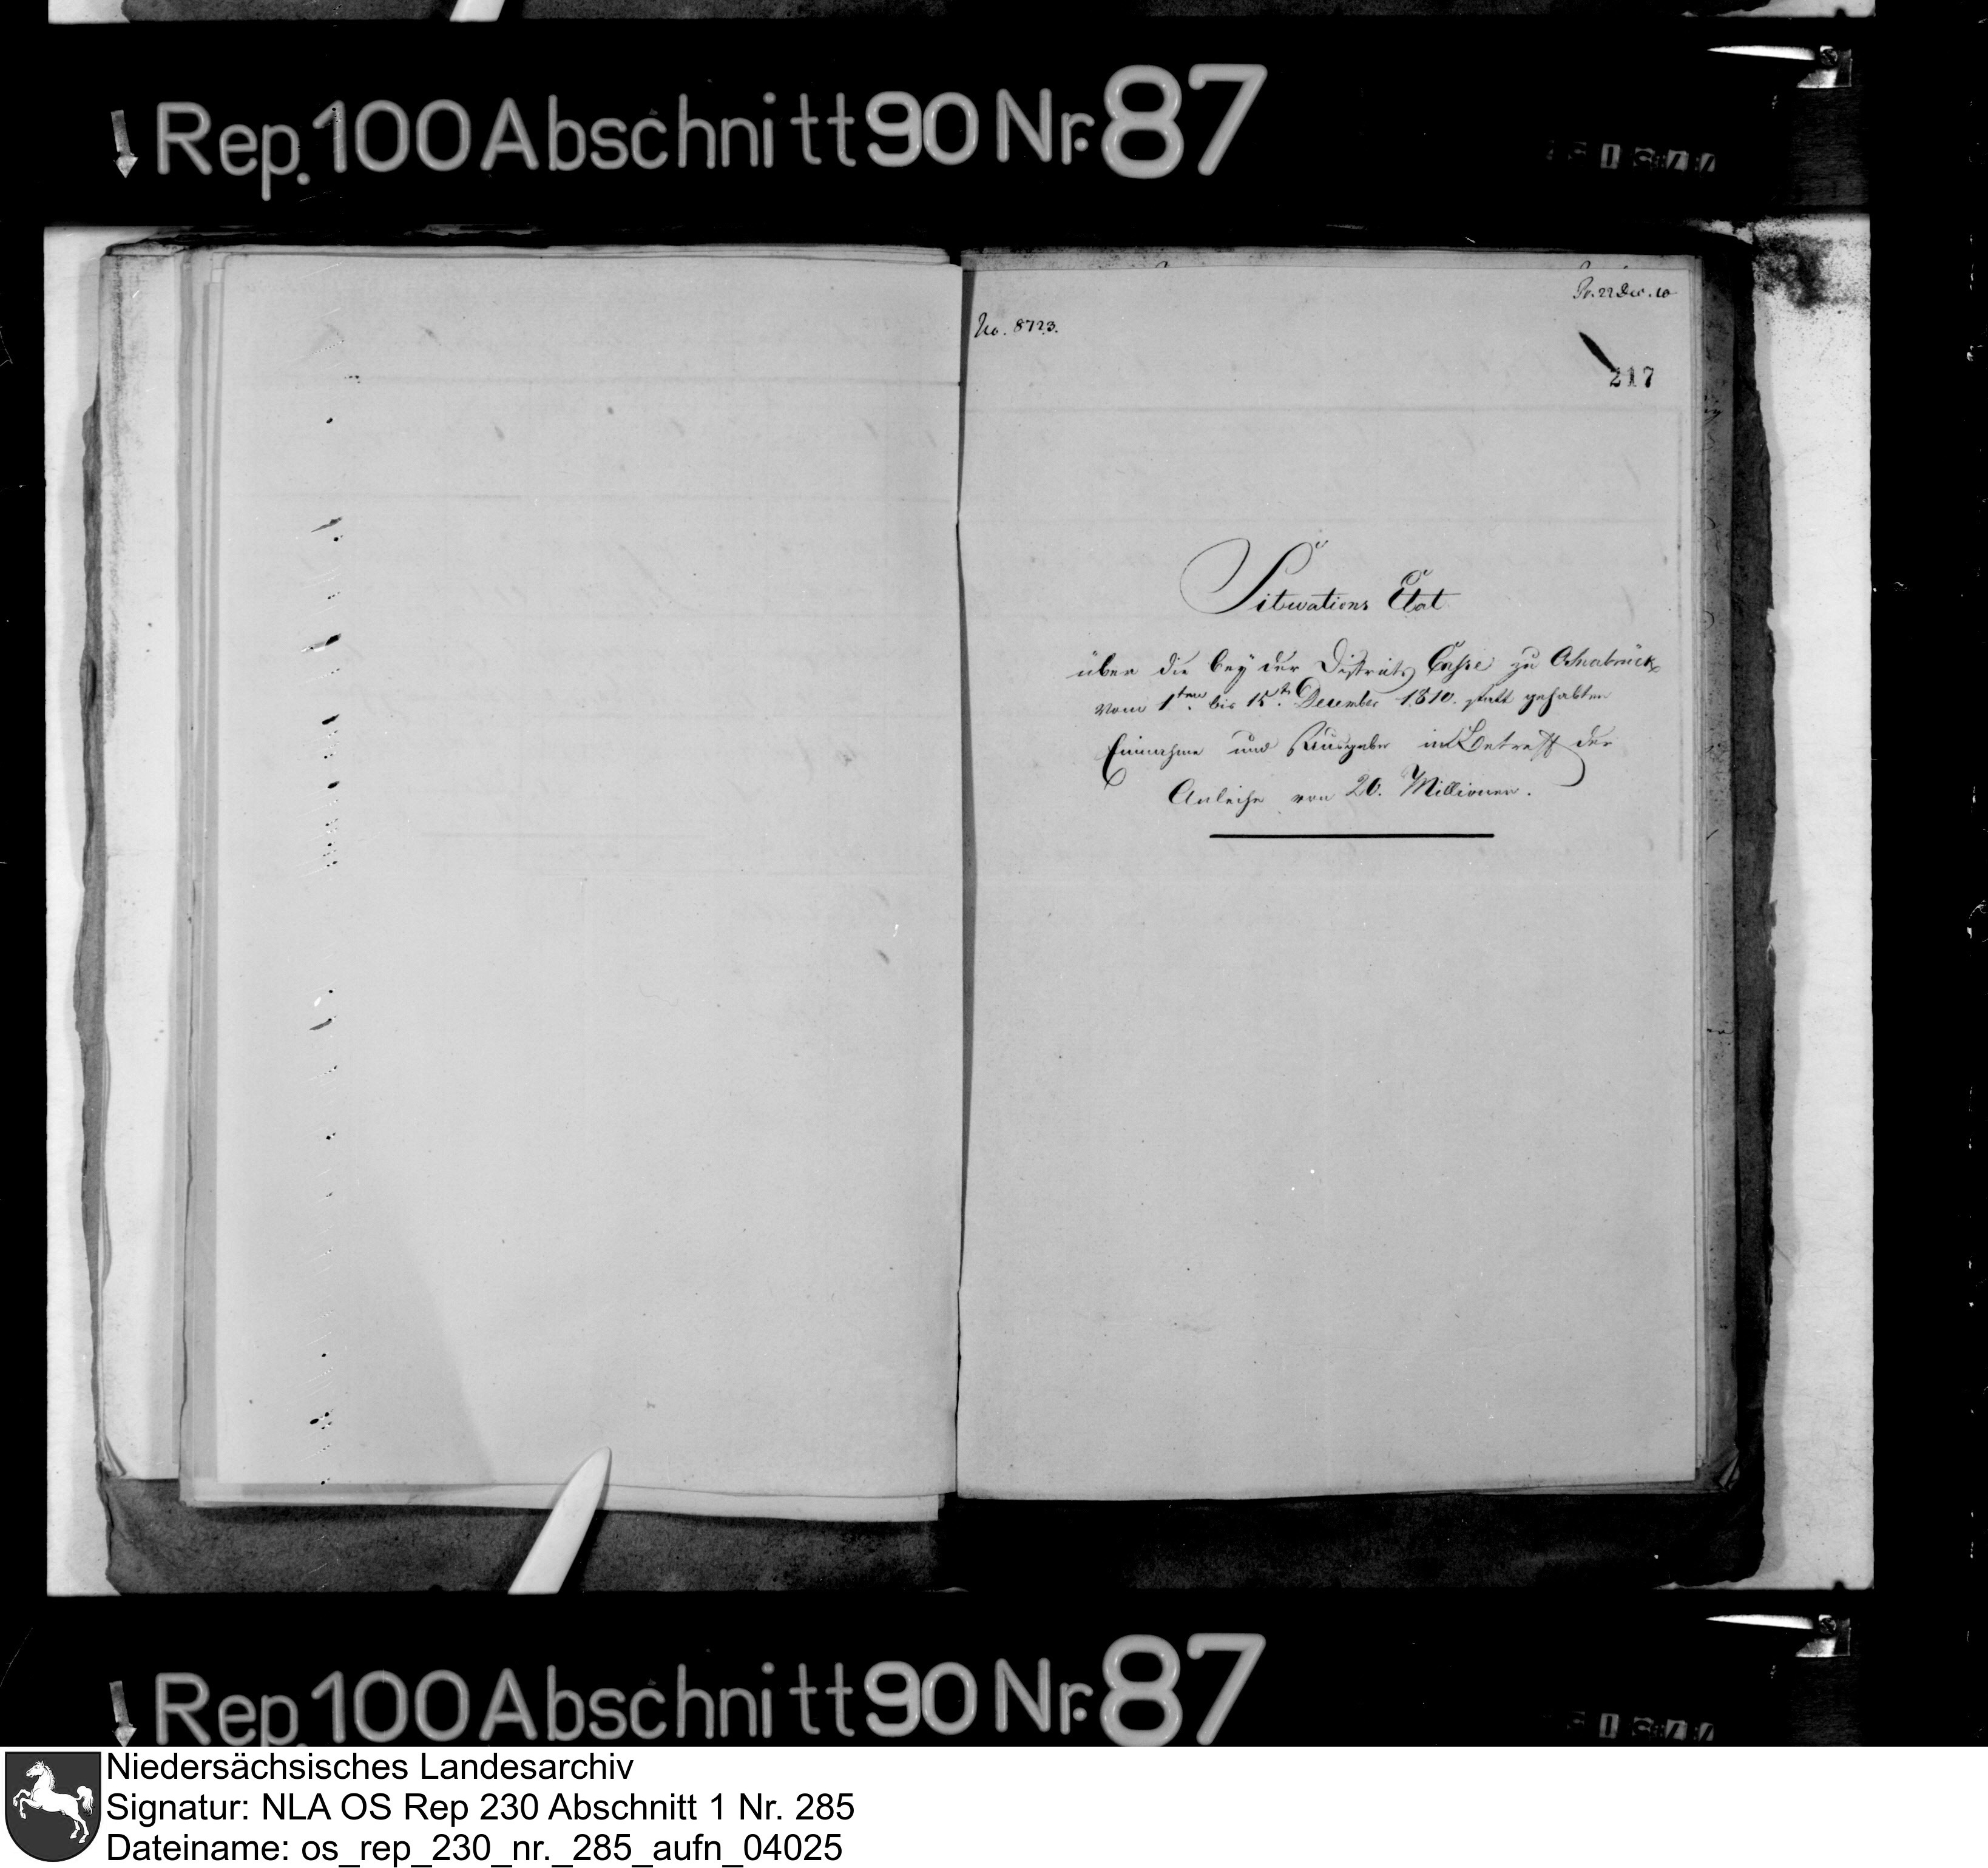 Rep. 100 Abschnitt 90 Nr. 87
Pr. 22 Dec. 10
No. 8723.
217
Situations Etat
über die bey der Districts Casse zu Osnabrück
vom 1ten bis 15t. December 1810. statt gehabten
Einnahme und Ausgabe in Betreff der
Anleihe von 20. Millionen.
Rep. 100 Abschnitt 90 Nr. 87
Niedersächsisches Landesarchiv
Signatur: NLA OS Rep 230 Abschnitt 1 Nr. 285
Dateiname: os_rep_230_nr._285_aufn_04025